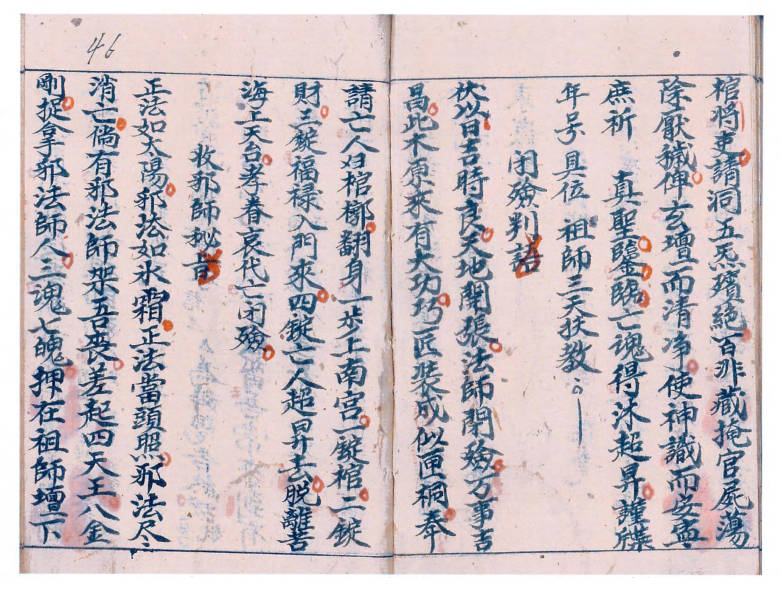 棺將吏請洞五炁殯絕百非藏掩官屍蕩
除厭穢俾玄壇而清净使神識而安盃
庶祈 真聖鑒臨亡魂得沐超昇謹牒
年号 具位 祖師三天扶教
閉殮判語
伏以日吉時良天地開張法師閉殮万事吉
昌此木原來有大功巧匠裝成似匣祠奉
請亡人归棺槨翻身一步上南宮一錠棺二錠
財三錠福禄入門來四錠亡人超昇去脫離苦
海上天台孝眷哀代亡閉殮
收邪師秘旨
正法如太陽邪法如氷霜正法當頭照邪法尽
消亡倘有邪法師架吾喪差起四天王八金
剛捉拿邪法師人三魂七魄押在祖師壇下
46